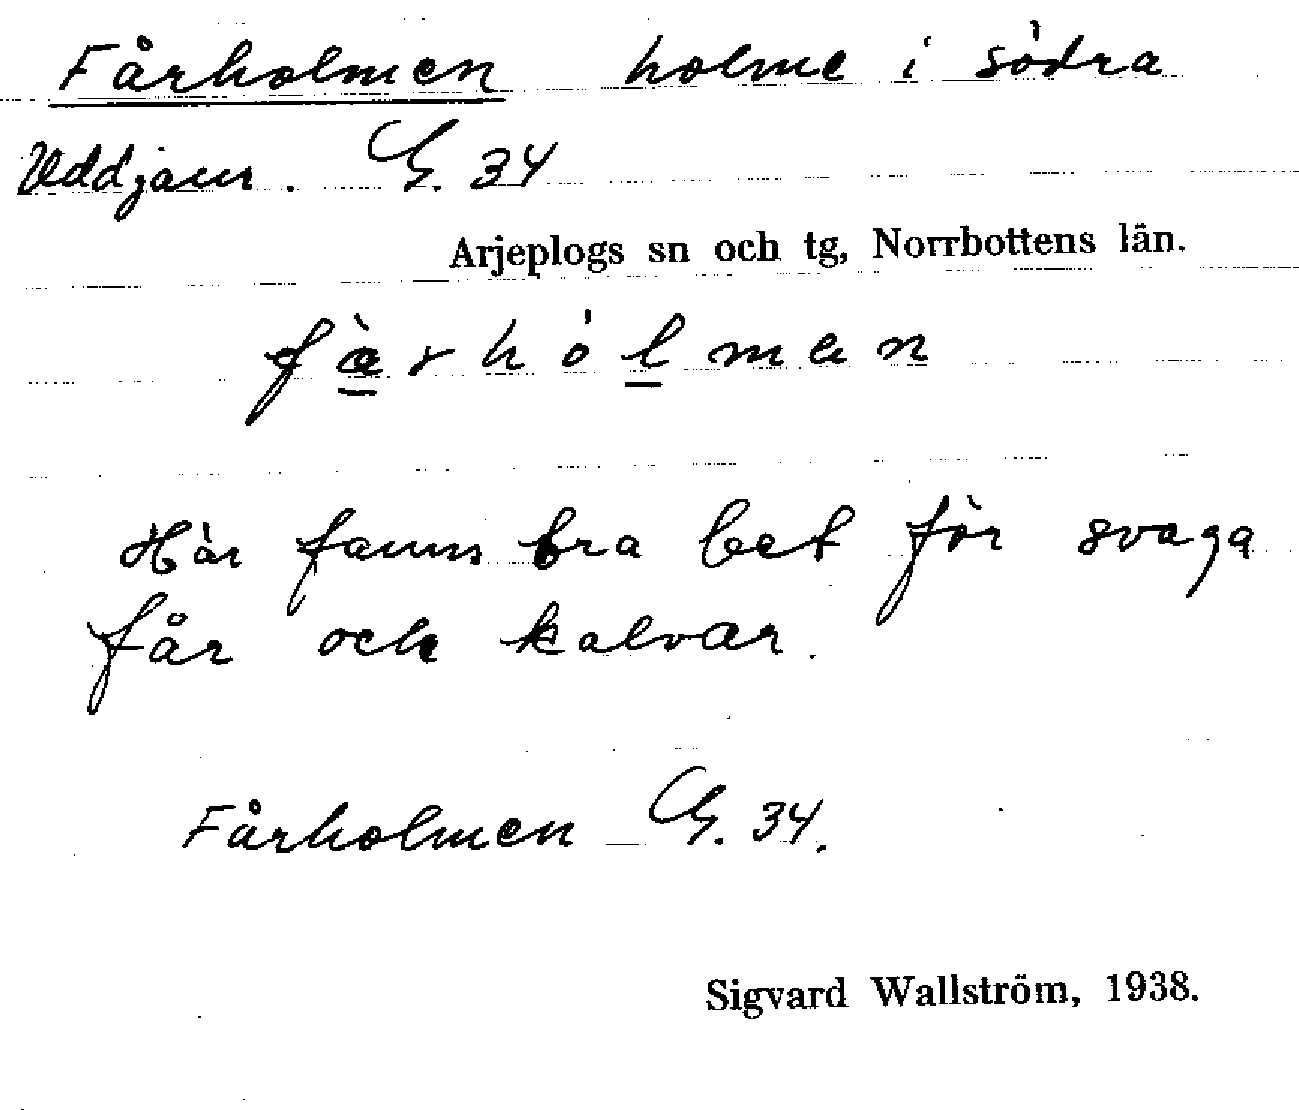 Fårholmen holme i södra
Uddjaur. G. 34
Arjeplogs sn och tg, Norrbottens län.
f à r h ó l m e n
Här fanns bra bet för svaga
får och kalvar.
Fårholmen G. 34.
Sigvard Wallström, 1938.